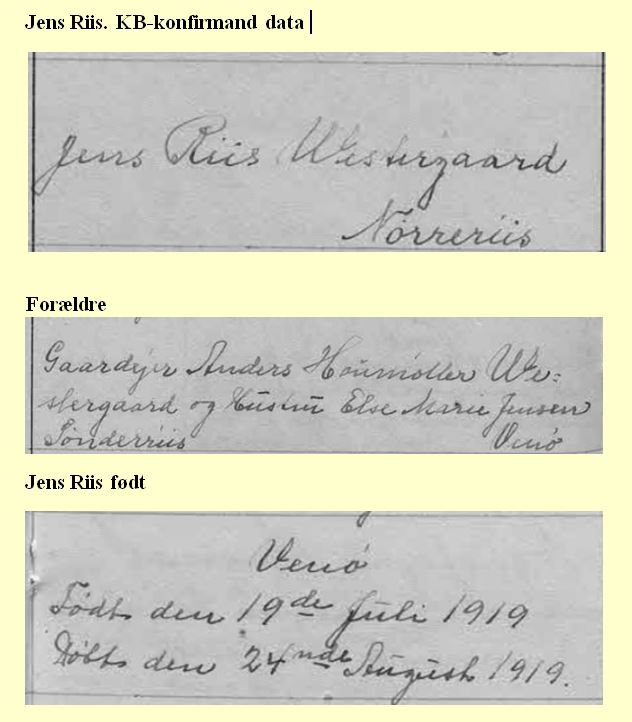 Jens Riis. KB-konfirmand data
Jens Riis Westergaard
Nørreriis
Forældre
Gaardejer Anders Houmøller We=
stergaard og Hustru Else Marie Jensen
Sønderriis Venø
Jens Riis født
Venø
Født den 19de Juli 1919
Døbt den 24nde August 1919.